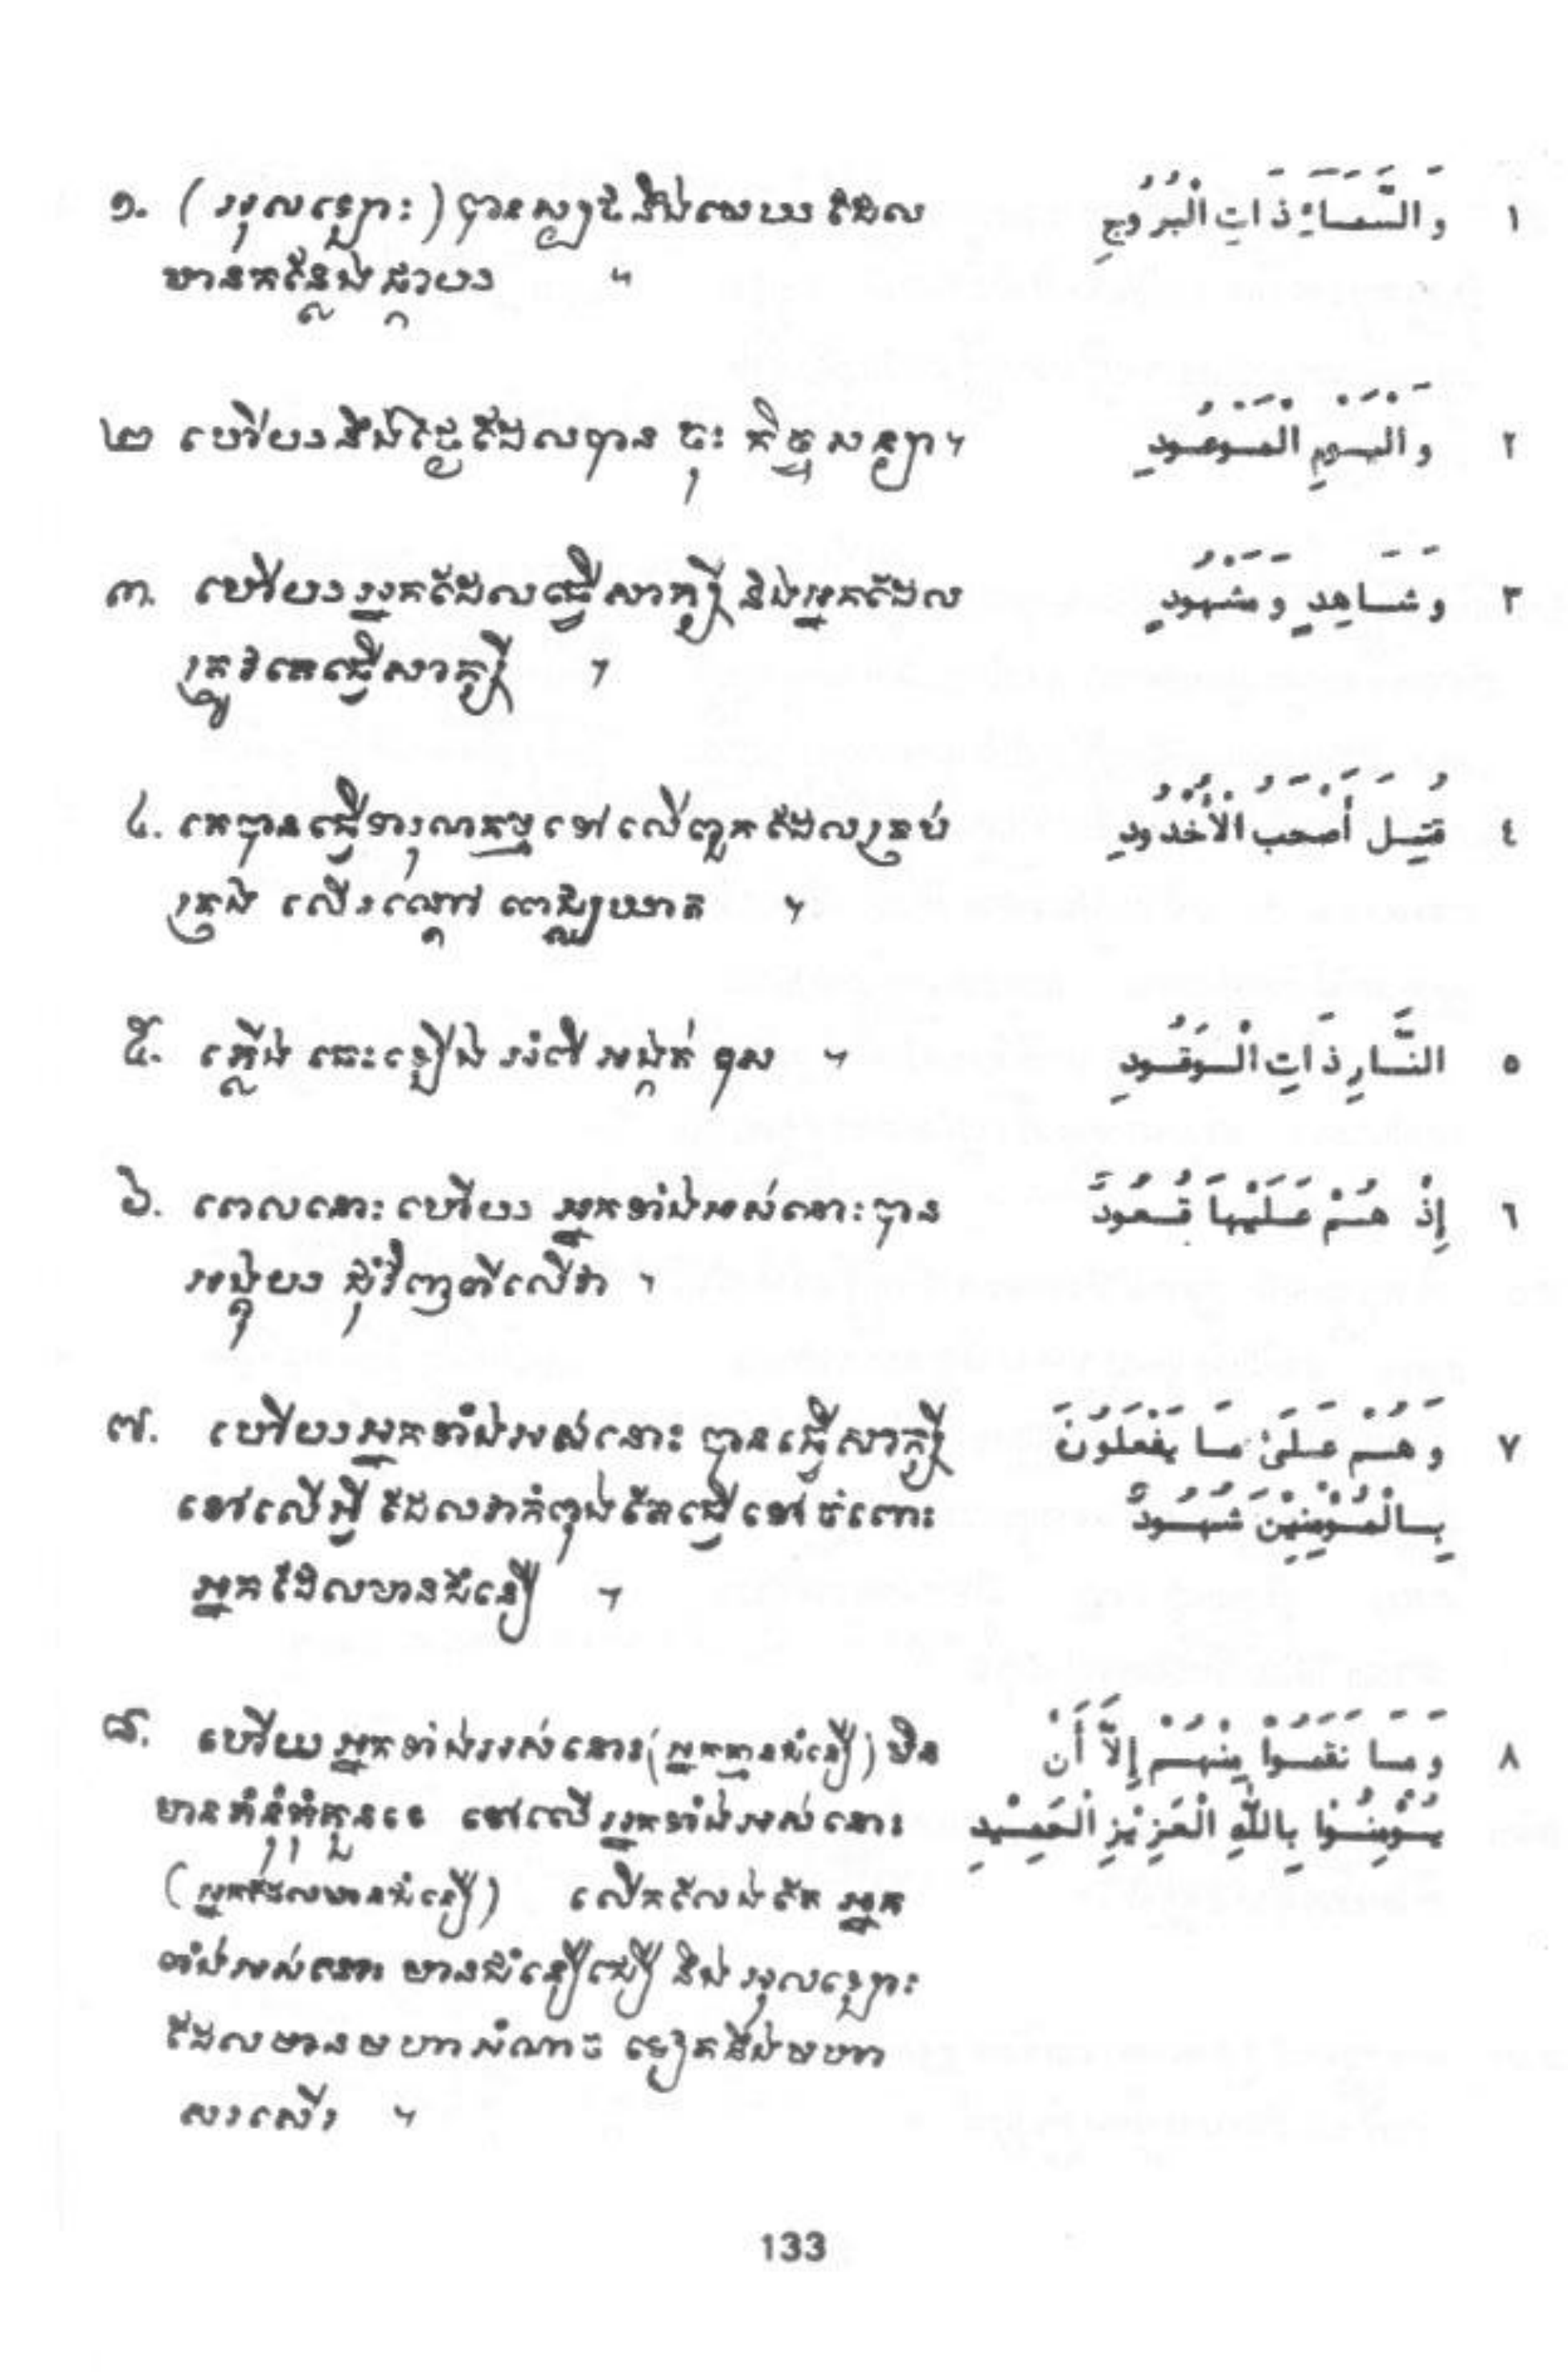 ១. (អុលឡោះ) បានស្បថនឹងមេឃដែល
មានកន្លែងផ្កាយ ។
وَالسَّمَاءِ ذَاتِ الْبُرُوجِ ١
២ ហើយនឹងថ្ងៃដែលបាន ចុះ កិច្ចសន្យា។
وَالْيَوْمِ الْمَوْعُودِ ٢
៣. ហើយអ្នកដែលធ្វើសាក្សី និងអ្នកដែល
ត្រូវគេធ្វើសាក្សី ។
وَشَاهِدٍ وَمَشْهُودٍ ٣
៤. គេបានធ្វើទារុណកម្មទៅលើពួកដែលគ្រប់
គ្រង លើរណ្តៅ ។
قُتِلَ أَصْحَبُ الْأُخْدُودِ ٤
៥. ភ្លើង ឆេះឡើង អំពី អង្កត់ ឧស ។
النَّارِ ذَاتِ الْوَقُودِ ٥
៦. ពេលនោះ ហើយ អ្នកទាំងអស់នោះបាន
អង្គុយ ជុំវិញពីលើវា ។
إِذْ هُمْ عَلَيْهَا قُعُودٌ ٦
៧. ហើយអ្នកទាំងអស់នោះ បានធ្វើសាក្សី
ទៅលើអ្វី ដែលវាកំពុងតែធ្វើទៅ ចំពោះ
អ្នកដែលមានជំនឿ ។
وَهُمْ عَلَىٰ مَا يَفْعَلُونَ ٧
بِالْمُؤْمِنِيْنَ شُهُودٌ
៨. ហើយអ្នកទាំងអស់នោះ(អ្នកគ្មានជំនឿ) មិន
មានគំនុំគុំគួនទេ ទៅលើអ្នកទាំងអស់នោះ
(អ្នកដែលមានជំនឿ) លើកលែងតែ អ្នក
ទាំងអស់នោះ មានជំនឿជឿ នឹង អុលឡោះ
ដែលមានមហាអំណាច ទៀតនឹងមហា
សរសើរ ។
وَمَا نَقَمُوا مِنْهُمْ إِلَّا أَنْ ٨
يُؤْمِنُوا بِاللَّهِ الْعَزِيْزِ الْحَمِيْدِ
133